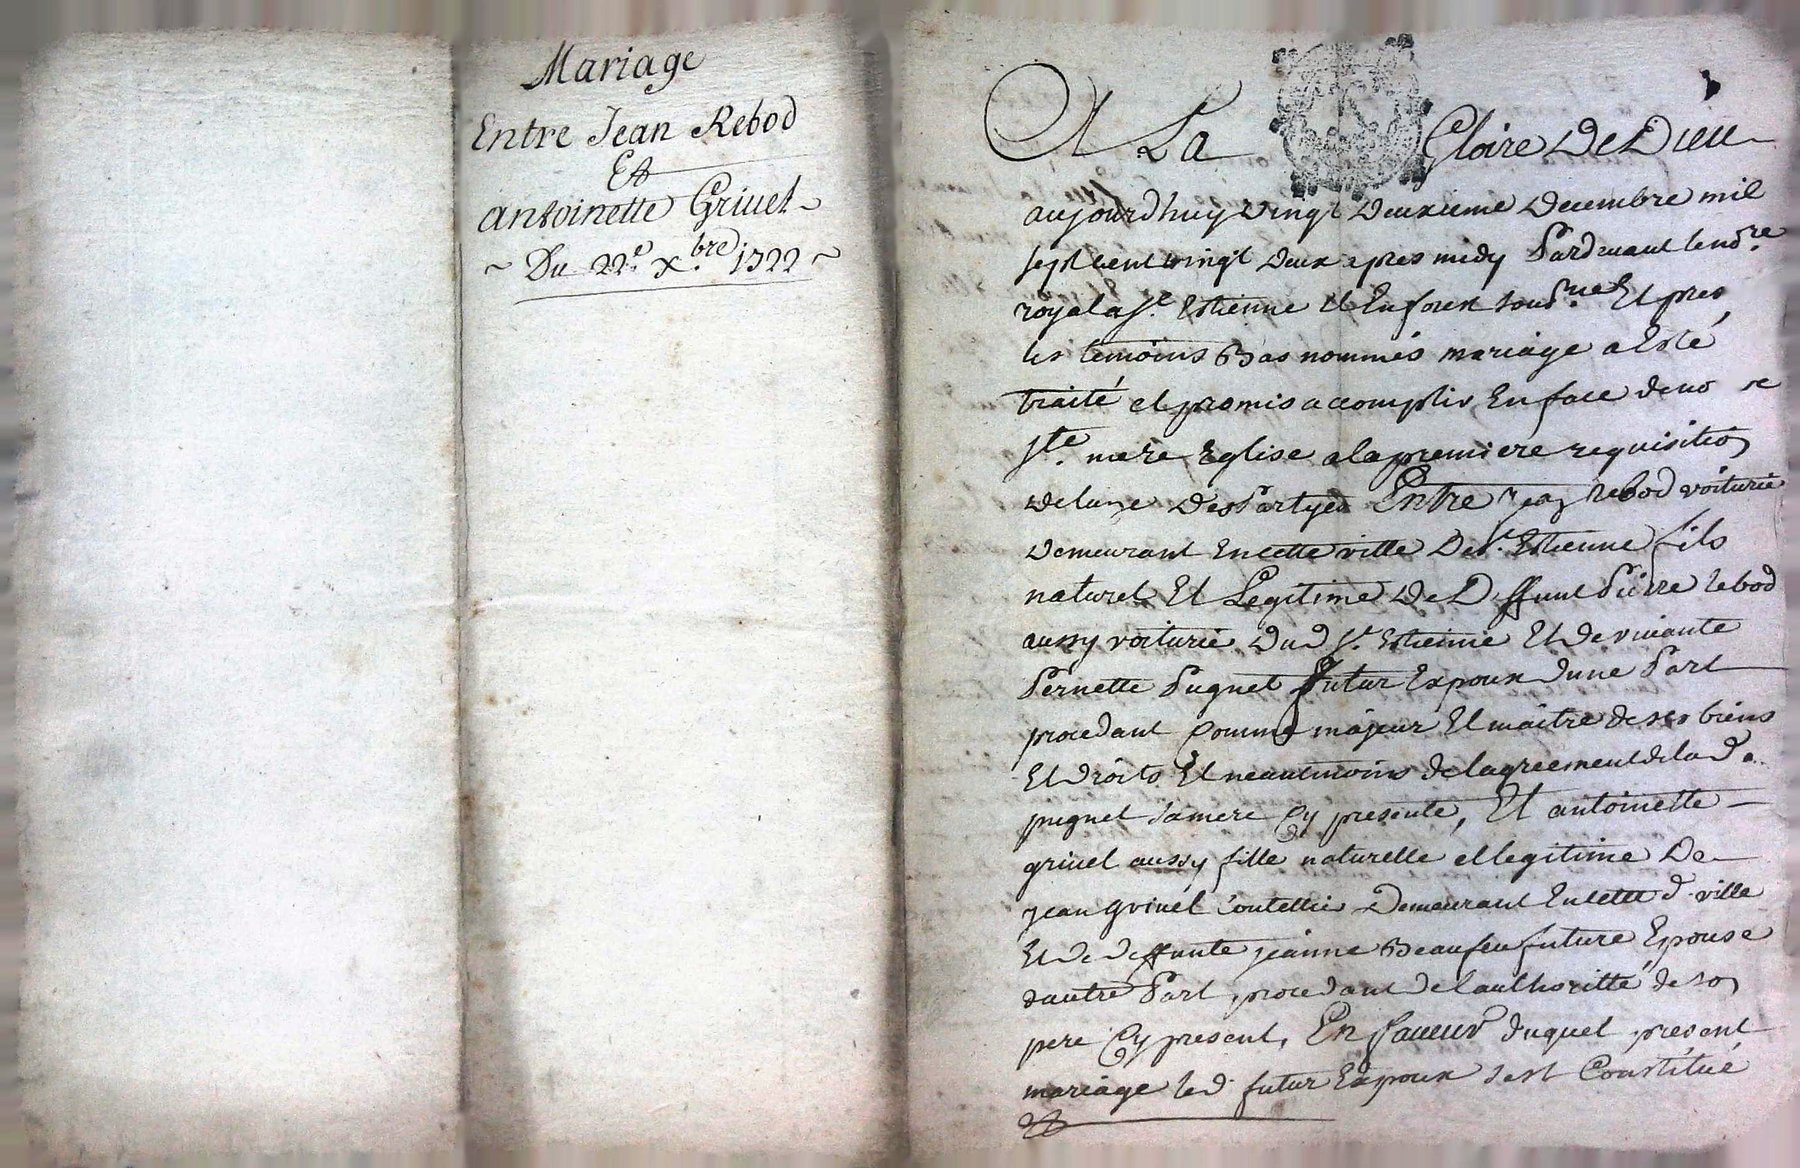 Mariage
Entre Jean Rebod
Et
antoinette Grivet
Du 22.e x.bre 1722
A La Gloire De Dieu
aujourdhuy vingt deuxieme decembre mil
sept cent vingt deux apres midy Pardevant le no.re
royal a St. Estienne Et En forex sous.ne Et pres
les temoins Bas nommés mariage a Esté
traité et promis accomplir En face de no re
Ste. mere Eglise a la premiere requisition
de lune des Partyes Entre jean Rebod voiturié
demeurant En cette ville De St. Estienne fils
naturel Et Legitime De Deffunt Pierre rebod
aussy voiturié dud St. Estienne Et de vivante
Pernette Pugnet futur Expoux dune Part
procedant comme majeur Et maitre de ses biens
Et droits Et neantmoins de lagreement de lad.
pugnet sa mere Cy presente, Et antoinette
grivet aussy fille naturelle et legitime De
jean Grivet Coutellié Demeurant En cette d. ville
Et de deffunte jeanne Beaufeu future Epouse
dautre Part, procedant de lauthoritté de son
pere Cy present, En faveur duquel present
mariage led. futur Expoux sest Constitué